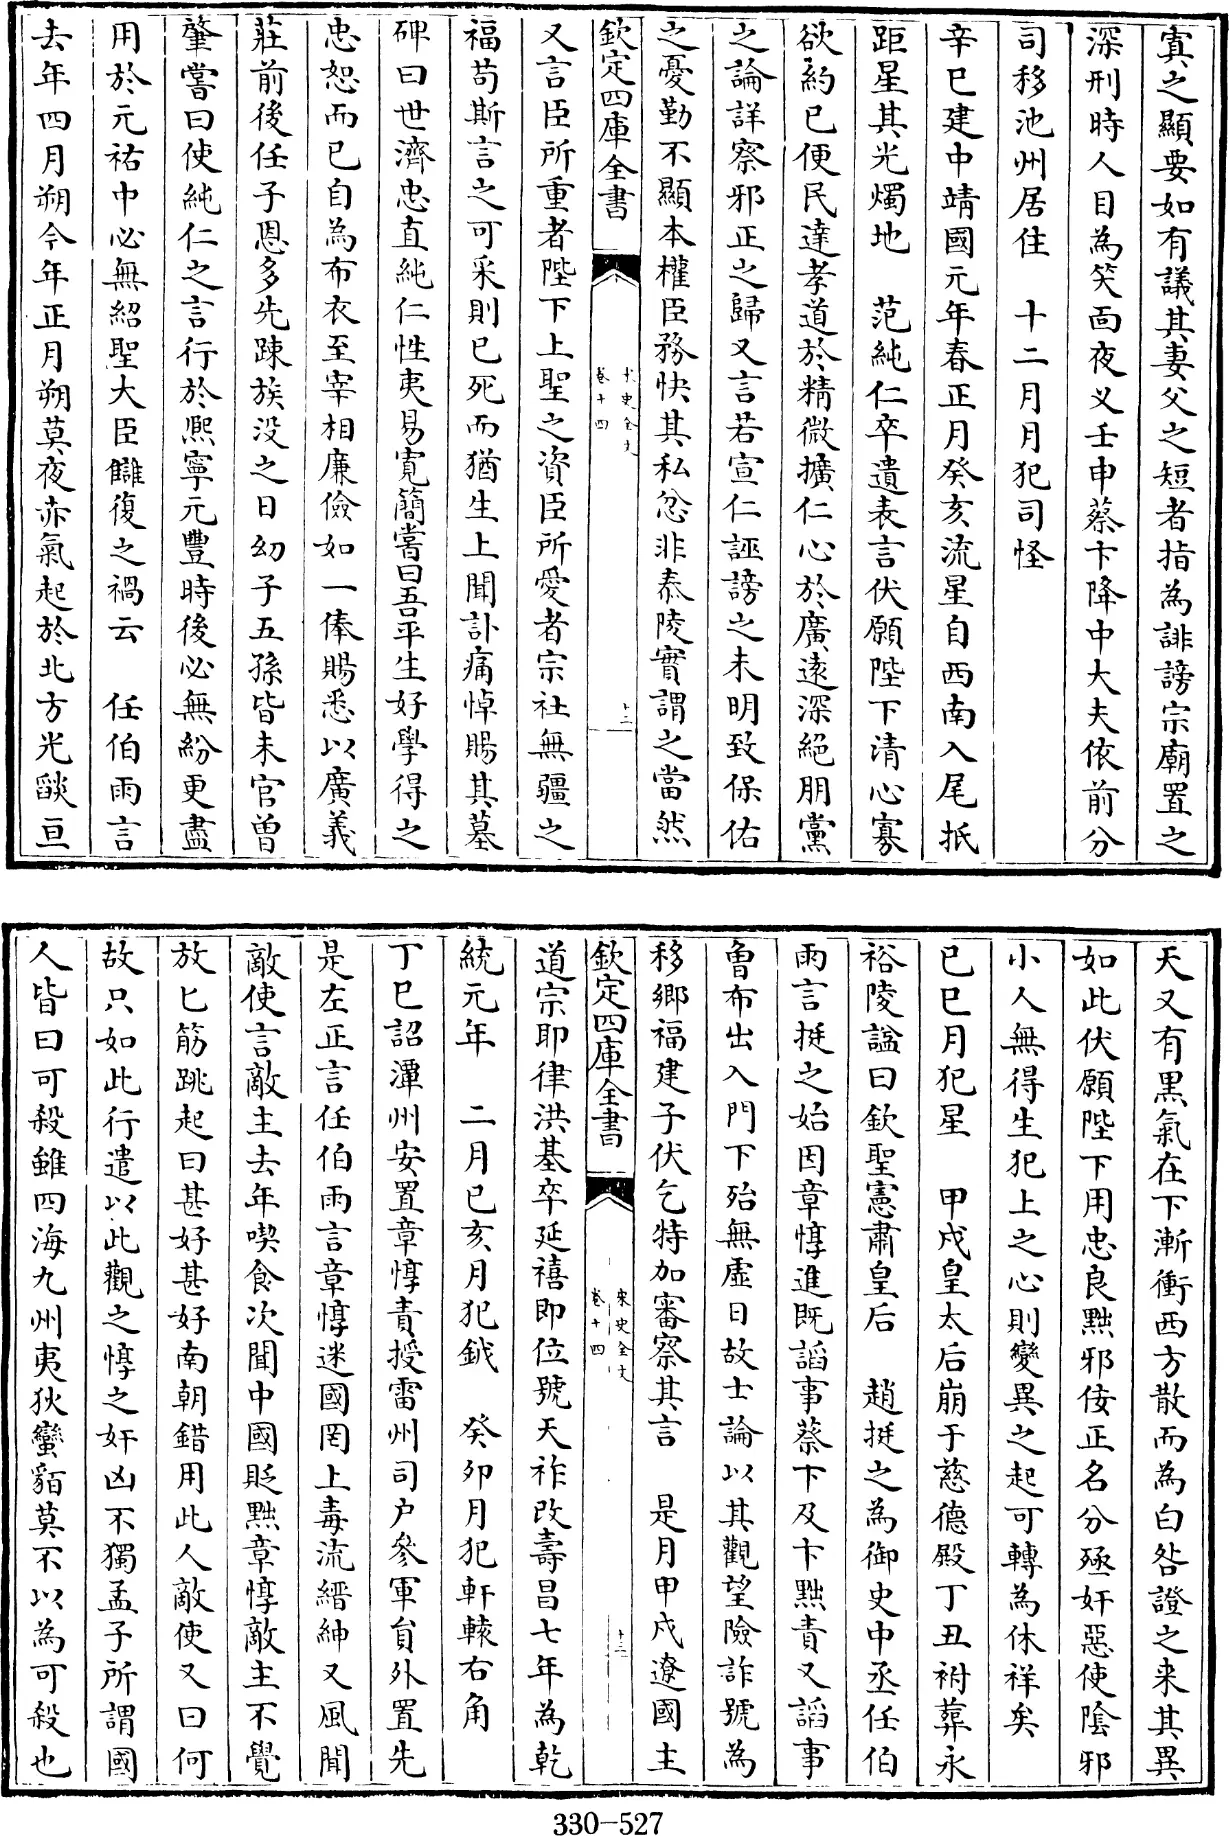 寘之顯要如有議其妻父之短者指為誹謗宗廟置之
深刑時人目為笑面夜义壬申蔡卞降中大夫依前分
司移池州居住　十二月月犯司怪
辛巳建中靖國元年春正月癸亥流星自西南入尾抵
距星其光燭地　范純仁卒遺表言伏願陛下清心寡
欲約已便民達孝道於精微擴仁心於廣逺深絕朋黨
之論詳察邪正之歸又言若宣仁誣謗之未明致保佑
之憂勤不顯本權臣務快其私忿非泰陵實謂之當然
欽定四庫全書
宋史全文
卷十四
十二
又言臣所重者陛下上聖之資臣所愛者宗社無疆之
福苟斯言之可采則已死而猶生上聞訃痛悼賜其墓
碑曰世濟忠直純仁性夷易寛簡嘗曰吾平生好學得之
忠恕而已自為布衣至宰相廉儉如一俸賜悉以廣義
莊前後任子恩多先踈族没之日幼子五孫皆未官曾
肇嘗曰使純仁之言行於熙寧元豐時後必無紛更盡
用於元祐中必無紹聖大臣讎復之禍云　任伯雨言
去年四月朔今年正月朔莫夜赤氣起於北方光燄亘
天又有黒氣在下漸衝西方散而為白咎證之来其異
如此伏願陛下用忠良黜邪佞正名分殛奸惡使陰邪
小人無得生犯上之心則變異之起可轉為休祥矣
已巳月犯星　甲戌皇太后崩于慈德殿丁丑祔葬永
裕陵諡曰欽聖憲肅皇后　趙挺之為御史中丞任伯
雨言挺之始因章惇進既謟事蔡卞及卞黜責又謟事
曾布出入門下殆無虛日故士論以其觀望險詐號為
移鄉福建子伏乞特加審察其言　是月甲戌遼國主
欽定四庫全書
宋史全文
卷十四
十三
道宗耶律洪基卒延禧即位號天祚改壽昌七年為乾
統元年　二月已亥月犯鉞　癸卯月犯軒轅右角
丁巳詔潭州安置章惇責授雷州司户參軍員外置先
是左正言任伯雨言章惇迷國罔上毒流縉紳又風聞
敵使言敵主去年喫食次聞中國貶黜章惇敵主不覺
放匕筯跳起曰甚好甚好南朝錯用此人敵使又曰何
故只如此行遣以此觀之惇之奸凶不獨孟子所謂國
人皆曰可殺雖四海九州夷狄蠻貊莫不以為可殺也
330-527